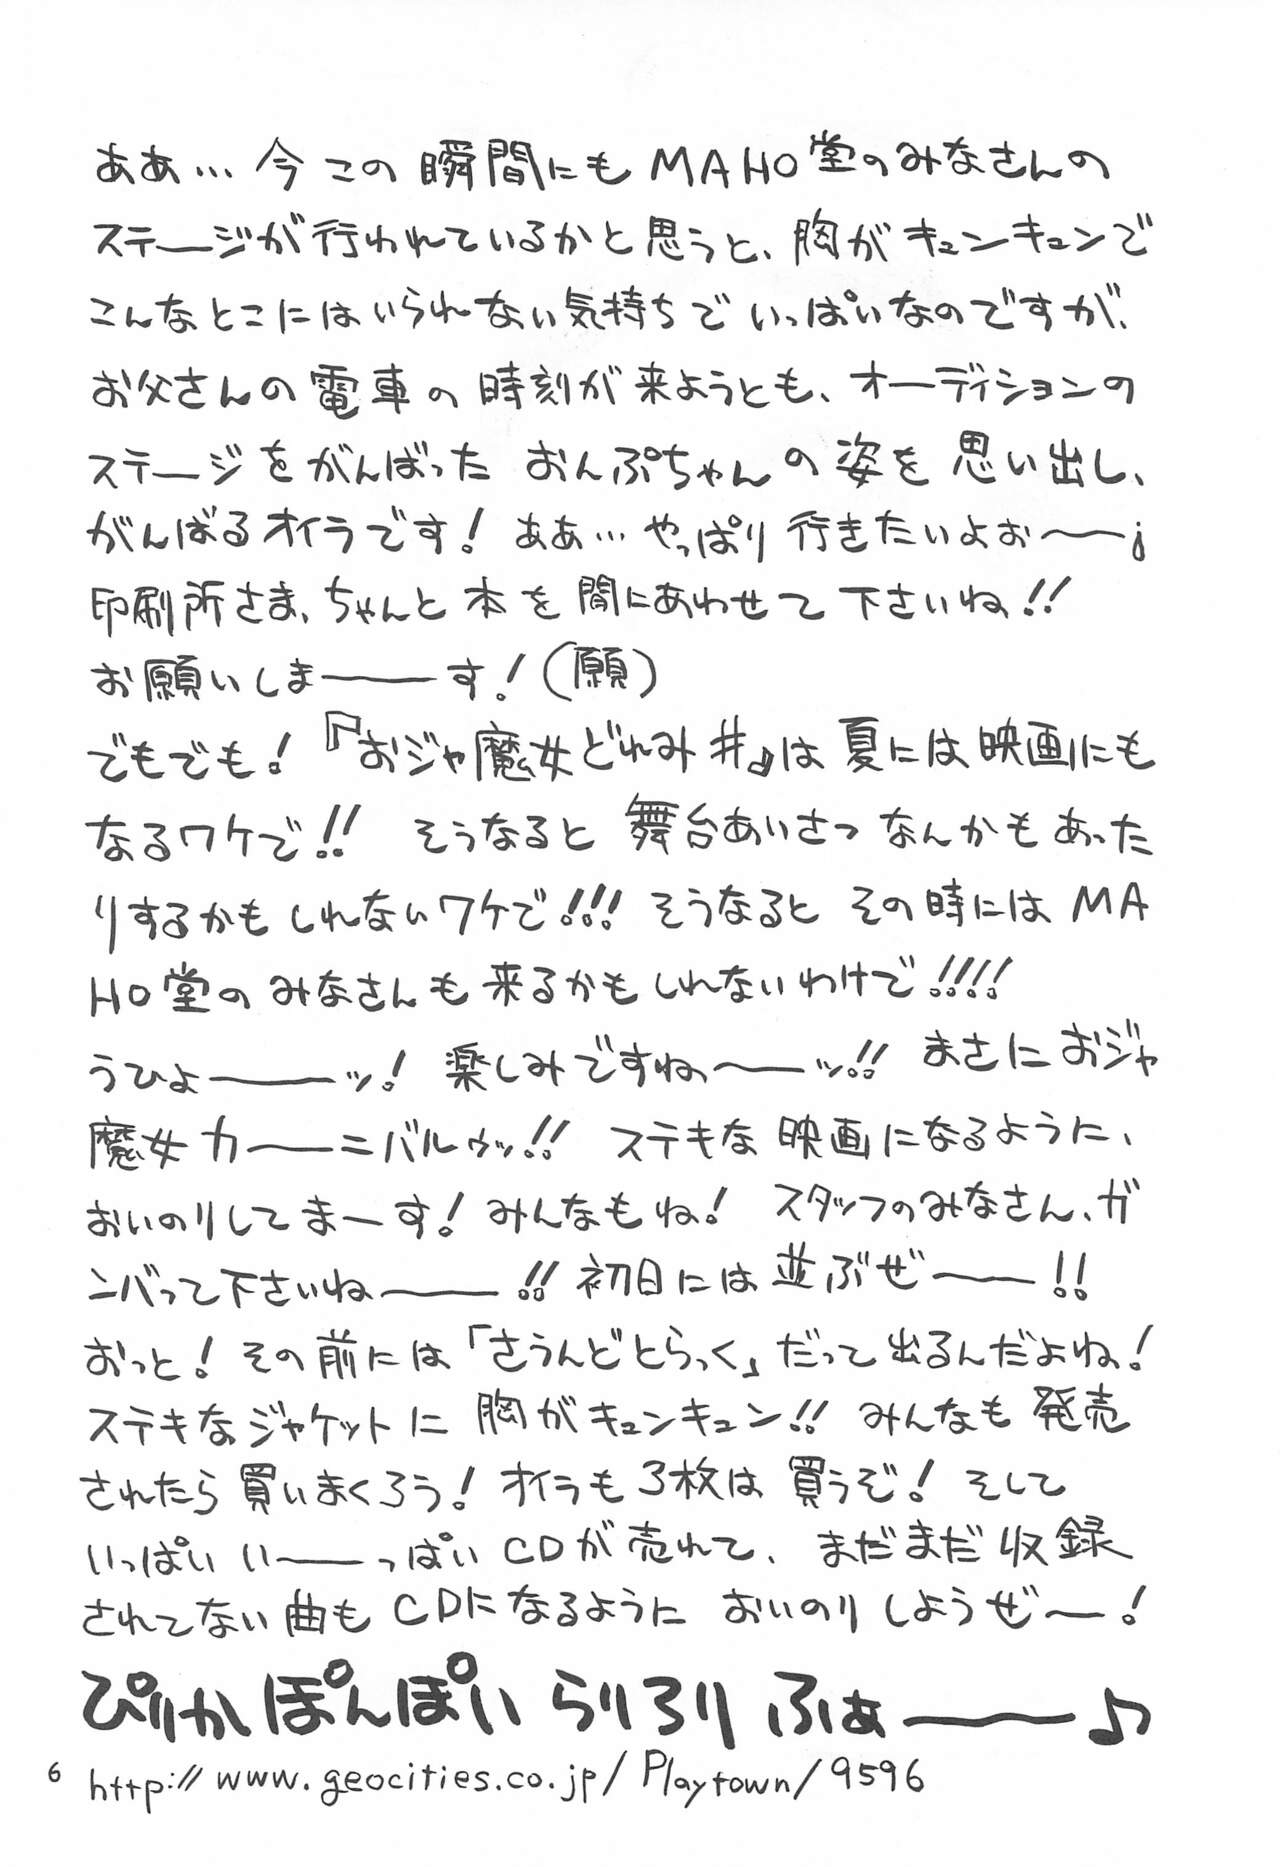 ああ…今この瞬間にもMAHO堂のみなさんの
ステージが行われているかと思うと、胸がキュンキュンで
こんなとこにはいられない気持ちでいっぱいなのですが、
お父さんの電車の時刻が来ようとも、オーディションの
ステージをがんばったおんぷちゃんの姿を思い出し、
がんばるオイラです!ああ…やっぱり行きたいよぉ〜〜¡
印刷所さま、ちゃんと本を間にあわせて下さいね!!
お願いしま――す!(願)
でもでも!『おジャ魔女どれみ#』は夏には映画にも
なるワケで!! そうなると舞台あいさつなんかもあった
りするかもしれないワケで!!! そうなるとその時にはMA
HO堂のみなさんも来るかもしれないわけで!!!!
うひょ――ッ! 楽しみですね〜〜ッ!! まさにおジャ
魔女カ――ニバルゥッ!! ステキな映画になるように、
おいのりしてまーす!みんなもね! スタッフのみなさん、ガ
ンバって下さいね――!! 初日には並ぶぜ――!!
おっと!その前には「さうんどとらっく」だって出るんだよね!
ステキなジャケットに胸がキュンキュン!! みんなも発売
されたら買いまくろう!オイラも3枚は買うぞ!そして
いっぱいい――っぱいCDが売れて、まだまだ収録
されてない曲もCDになるようにおいのりしようぜ〜!
ぴりかぽんぽいらりろりふぁ――♪
6 http://www.geocities.co.jp/Playtown/9596